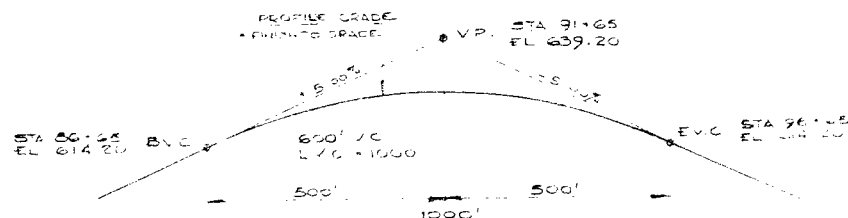 PROFILE GRADE
FINISH'D GRADE
V.P.
STA 91+65
EL 639.20
5.00%
STA 86+65
EL 614.20
B.V.C.
600' VC
L VC = 1000
E.V.C
STA 96+65
EL
500'
500'
1000'